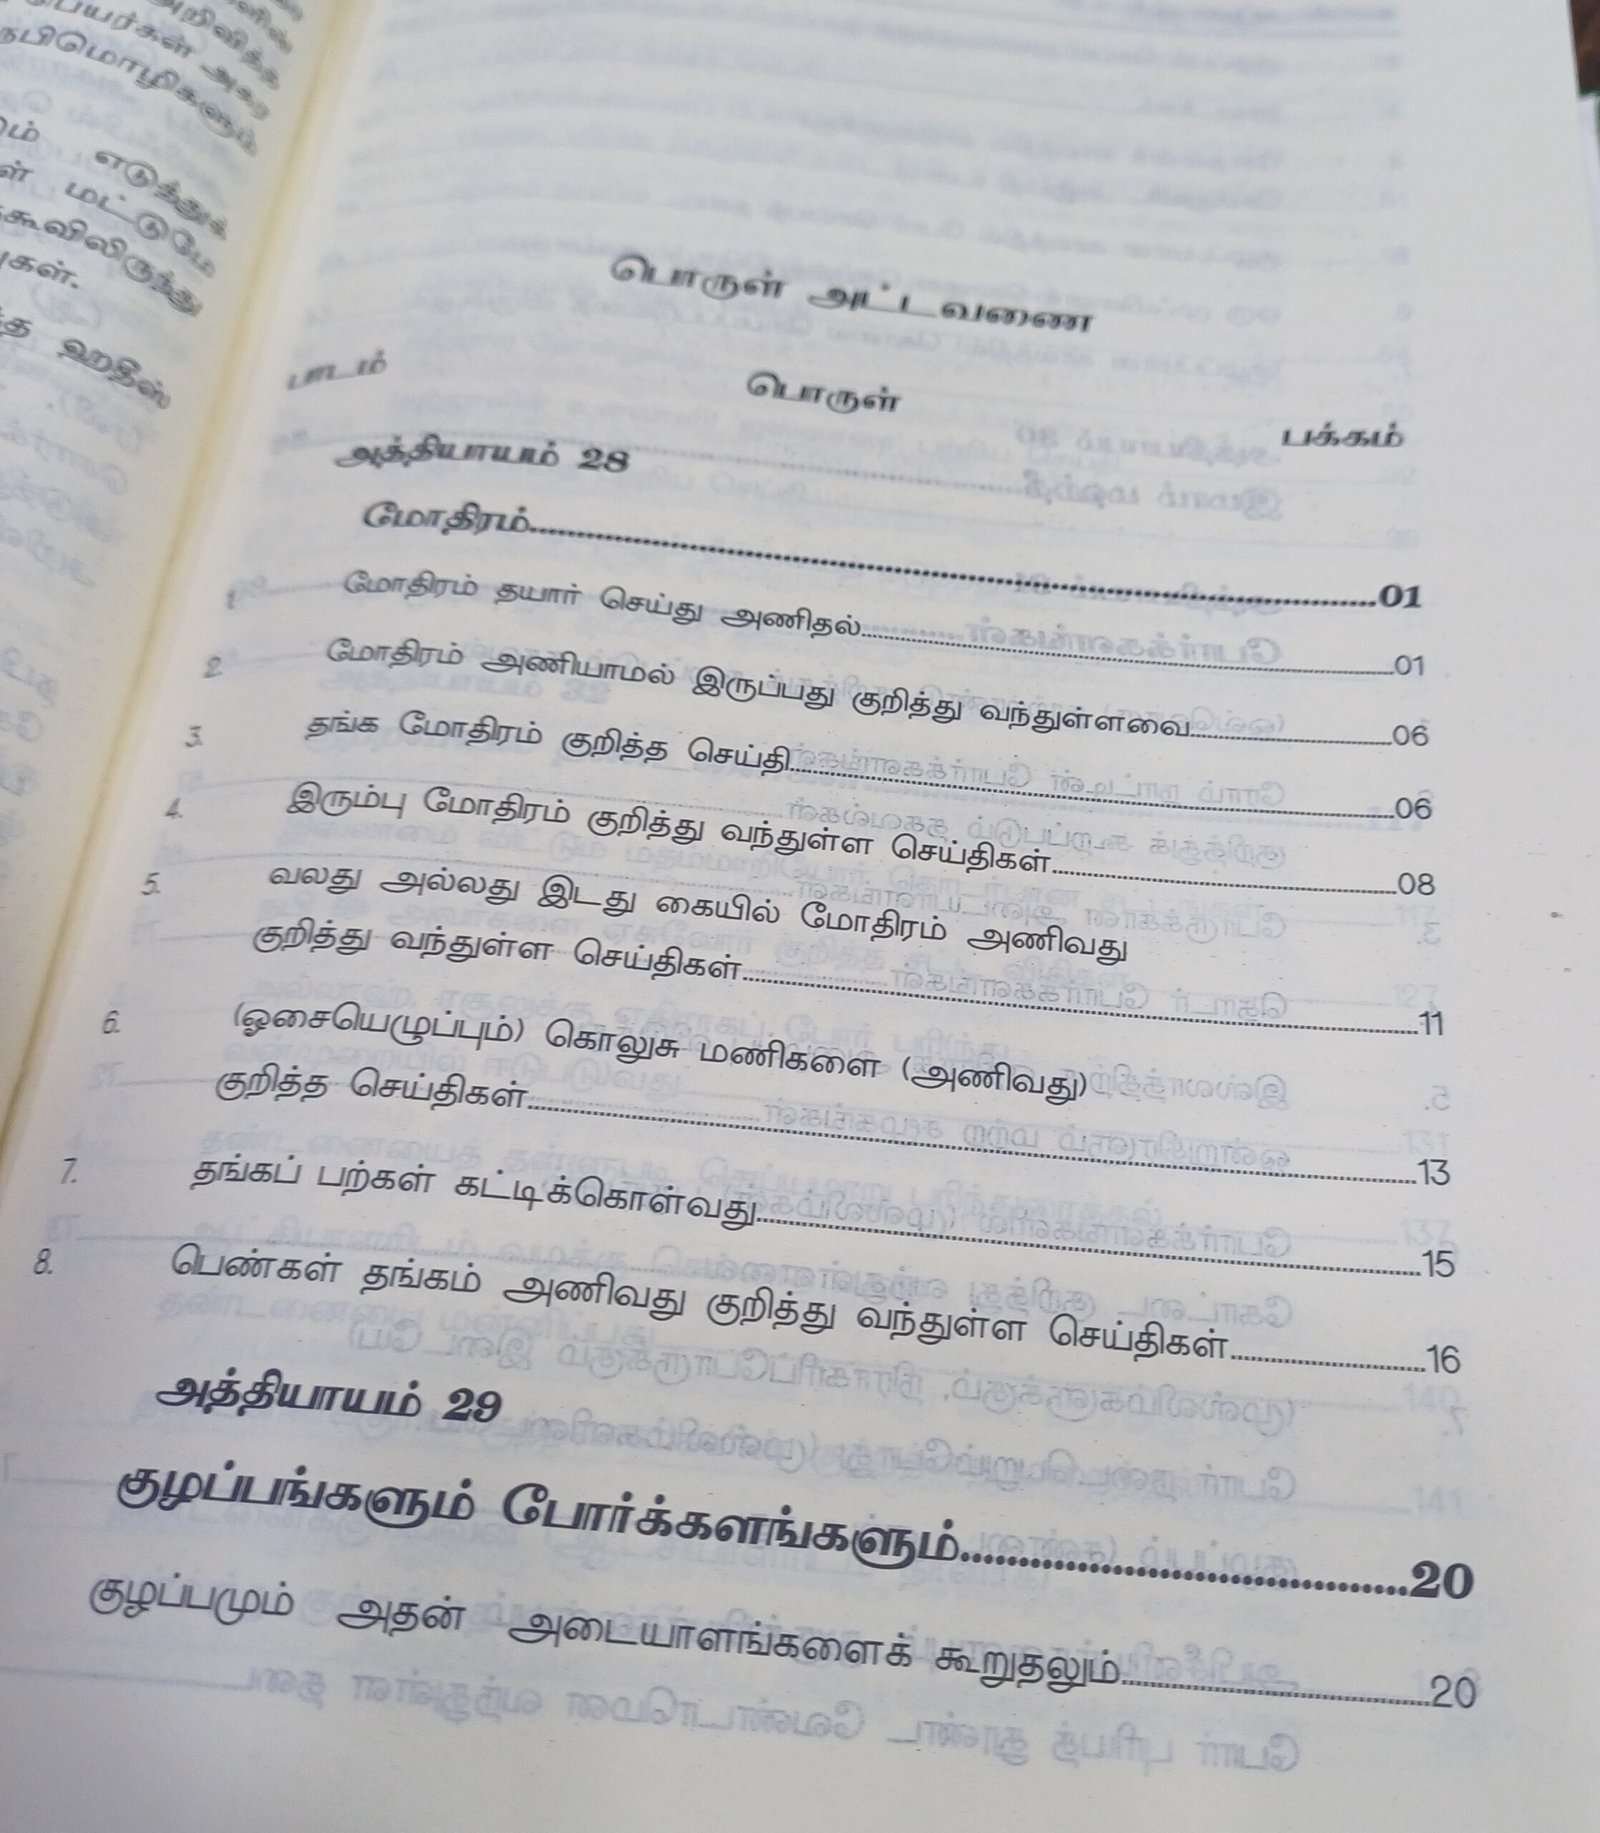 அறிவித்த
நபிமொழிகளும்
எடுத்துக்
மட்டுமே
ஹதீஸ்
பொருள் அட்டவணை
பாடம் பொருள் பக்கம்
அத்தியாயம் 28
மோதிரம்..........01
1. மோதிரம் தயார் செய்து அணிதல்..........01
2. மோதிரம் அணியாமல் இருப்பது குறித்து வந்துள்ளவை..........06
3. தங்க மோதிரம் குறித்த செய்தி..........06
4. இரும்பு மோதிரம் குறித்து வந்துள்ள செய்திகள்..........08
5. வலது அல்லது இடது கையில் மோதிரம் அணிவது
குறித்து வந்துள்ள செய்திகள்..........11
6. (ஓசையெழுப்பும்) கொலுசு மணிகளை (அணிவது)
குறித்த செய்திகள்..........13
7. தங்கப் பற்கள் கட்டிக்கொள்வது..........15
8. பெண்கள் தங்கம் அணிவது குறித்து வந்துள்ள செய்திகள்..........16
அத்தியாயம் 29
குழப்பங்களும் போர்க்களங்களும்..........20
குழப்பமும் அதன் அடையாளங்களைக் கூறுதலும்..........20